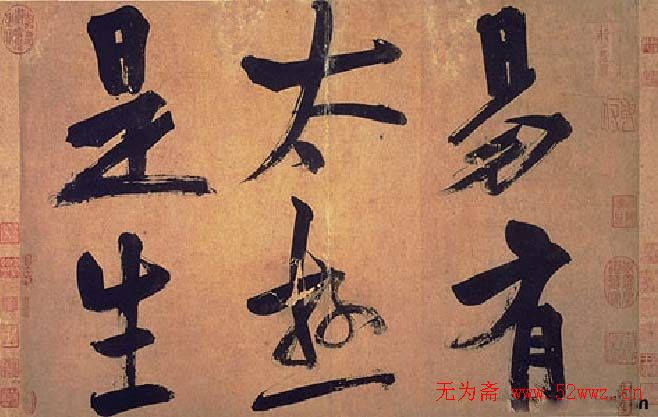 易有
太极
是生
无为斋 www.52wwz.cn